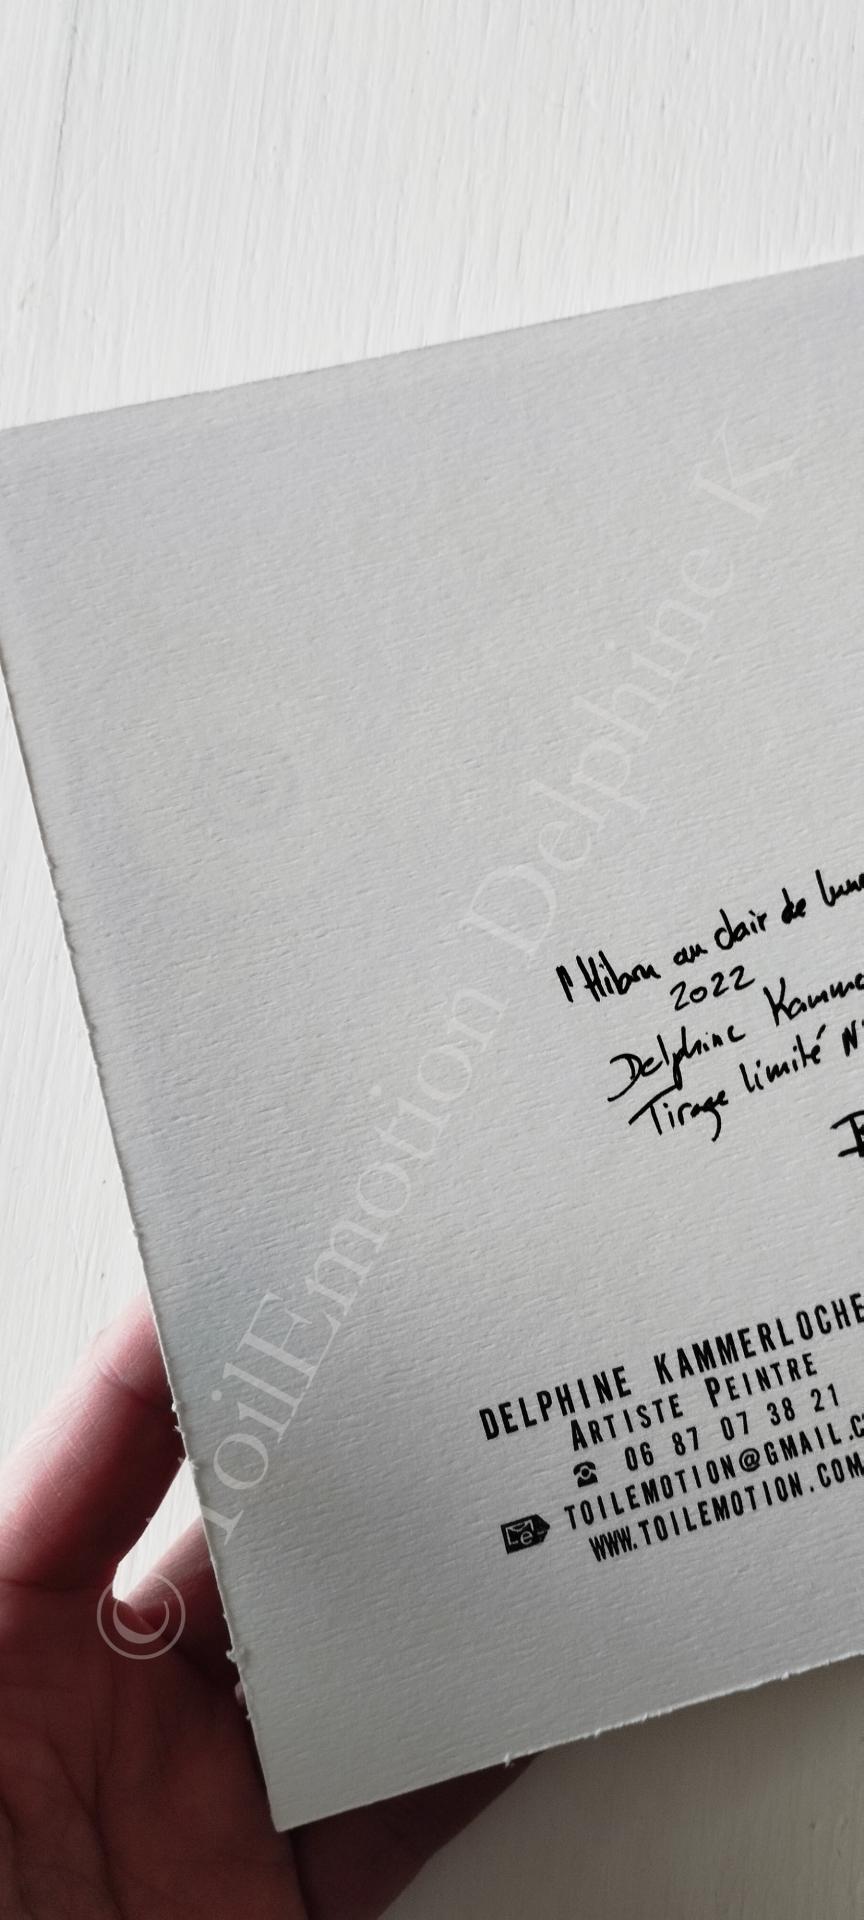 l'Hibou au clair de lune
2022
Delphine Kamme
Tirage limité N°
DELPHINE KAMMERLOCHE
ARTISTE PEINTRE
☎ 06 87 07 38 21
TOILEMOTION@GMAIL.C
WWW.TOILEMOTION.COM
© ToilEmotion Delphine K